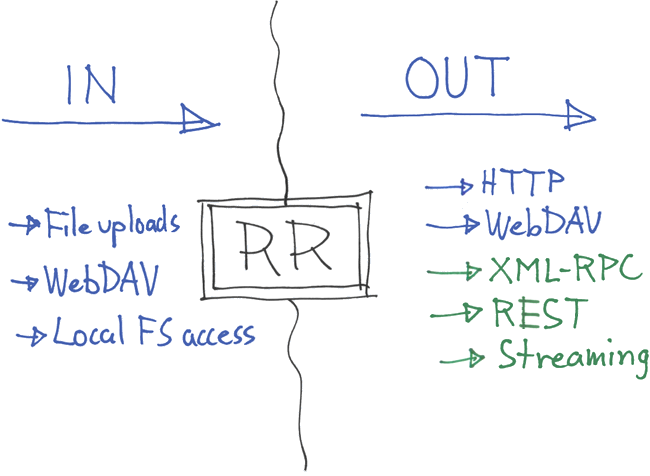 IN
OUT
File uploads
WebDAV
Local FS access
RR
HTTP
WebDAV
XML-RPC
REST
Streaming